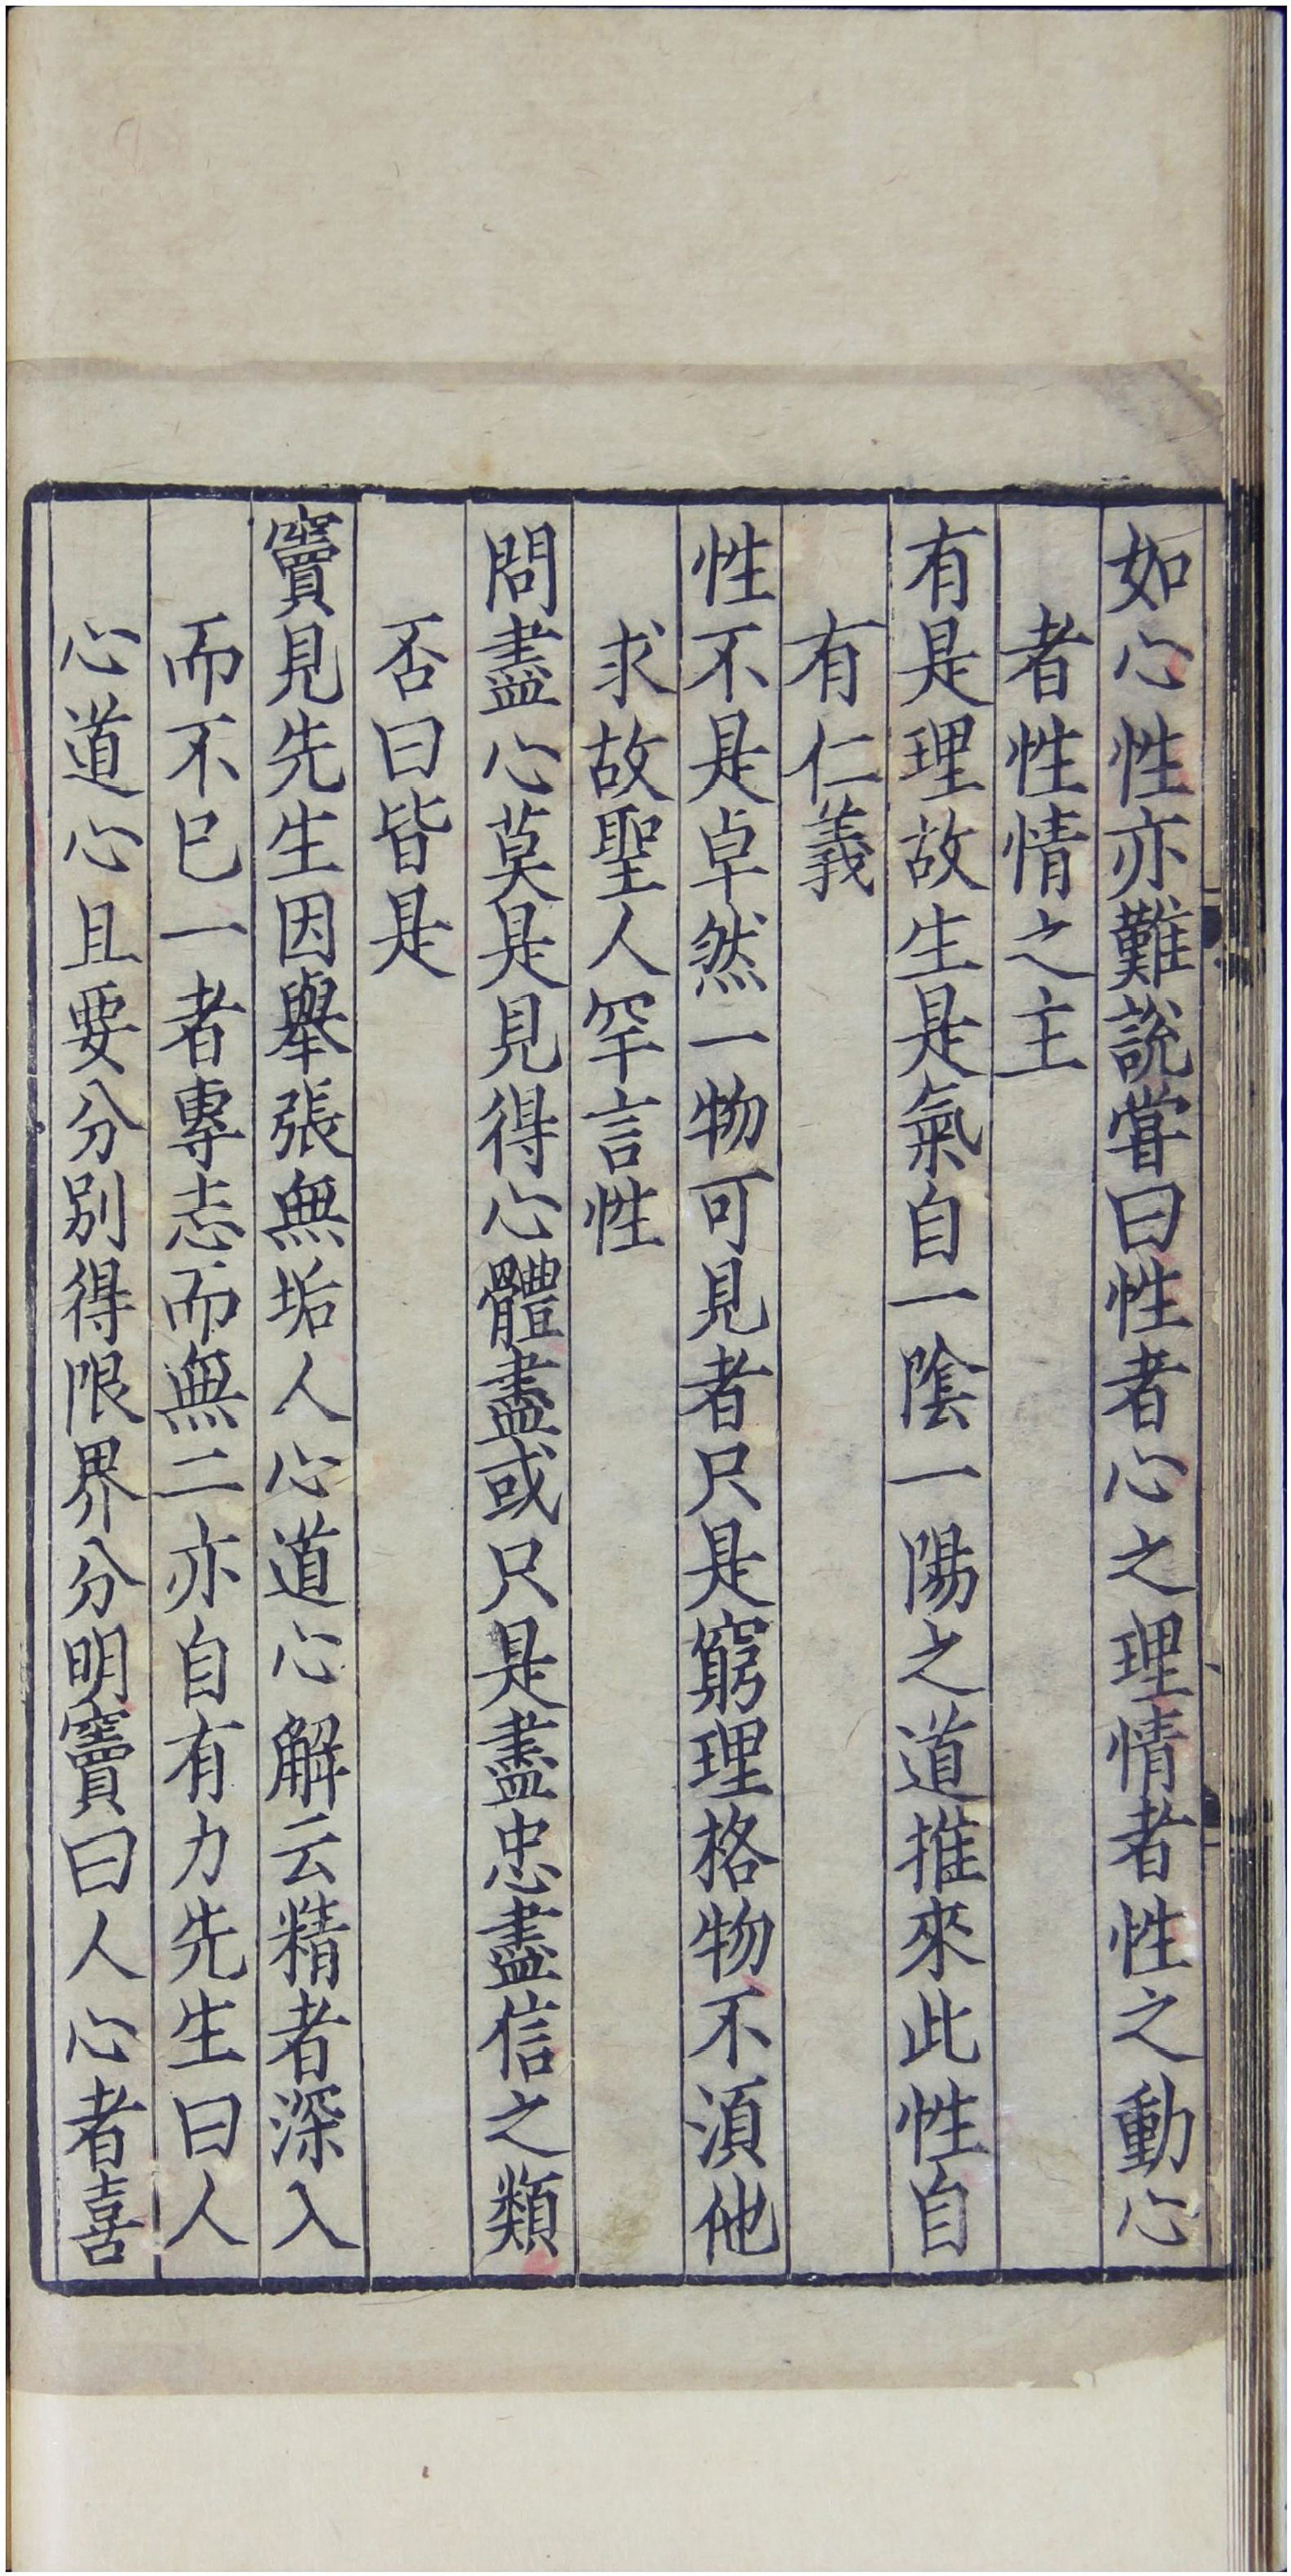 如心性亦難說甞曰性者心之理情者性之動心
者性情之主
有是理故生是氣自一陰一陽之道推來此性自
有仁義
性不是卓然一物可見者只是窮理格物不湏他
求故聖人罕言性
問盡心莫是見得心體盡或只是盡忠盡信之類
否曰皆是
竇見先生因舉張無垢人心道心解云精者深入
而不已一者專志而無二亦自有力先生曰人
心道心且要分別得限界分明竇曰人心者喜